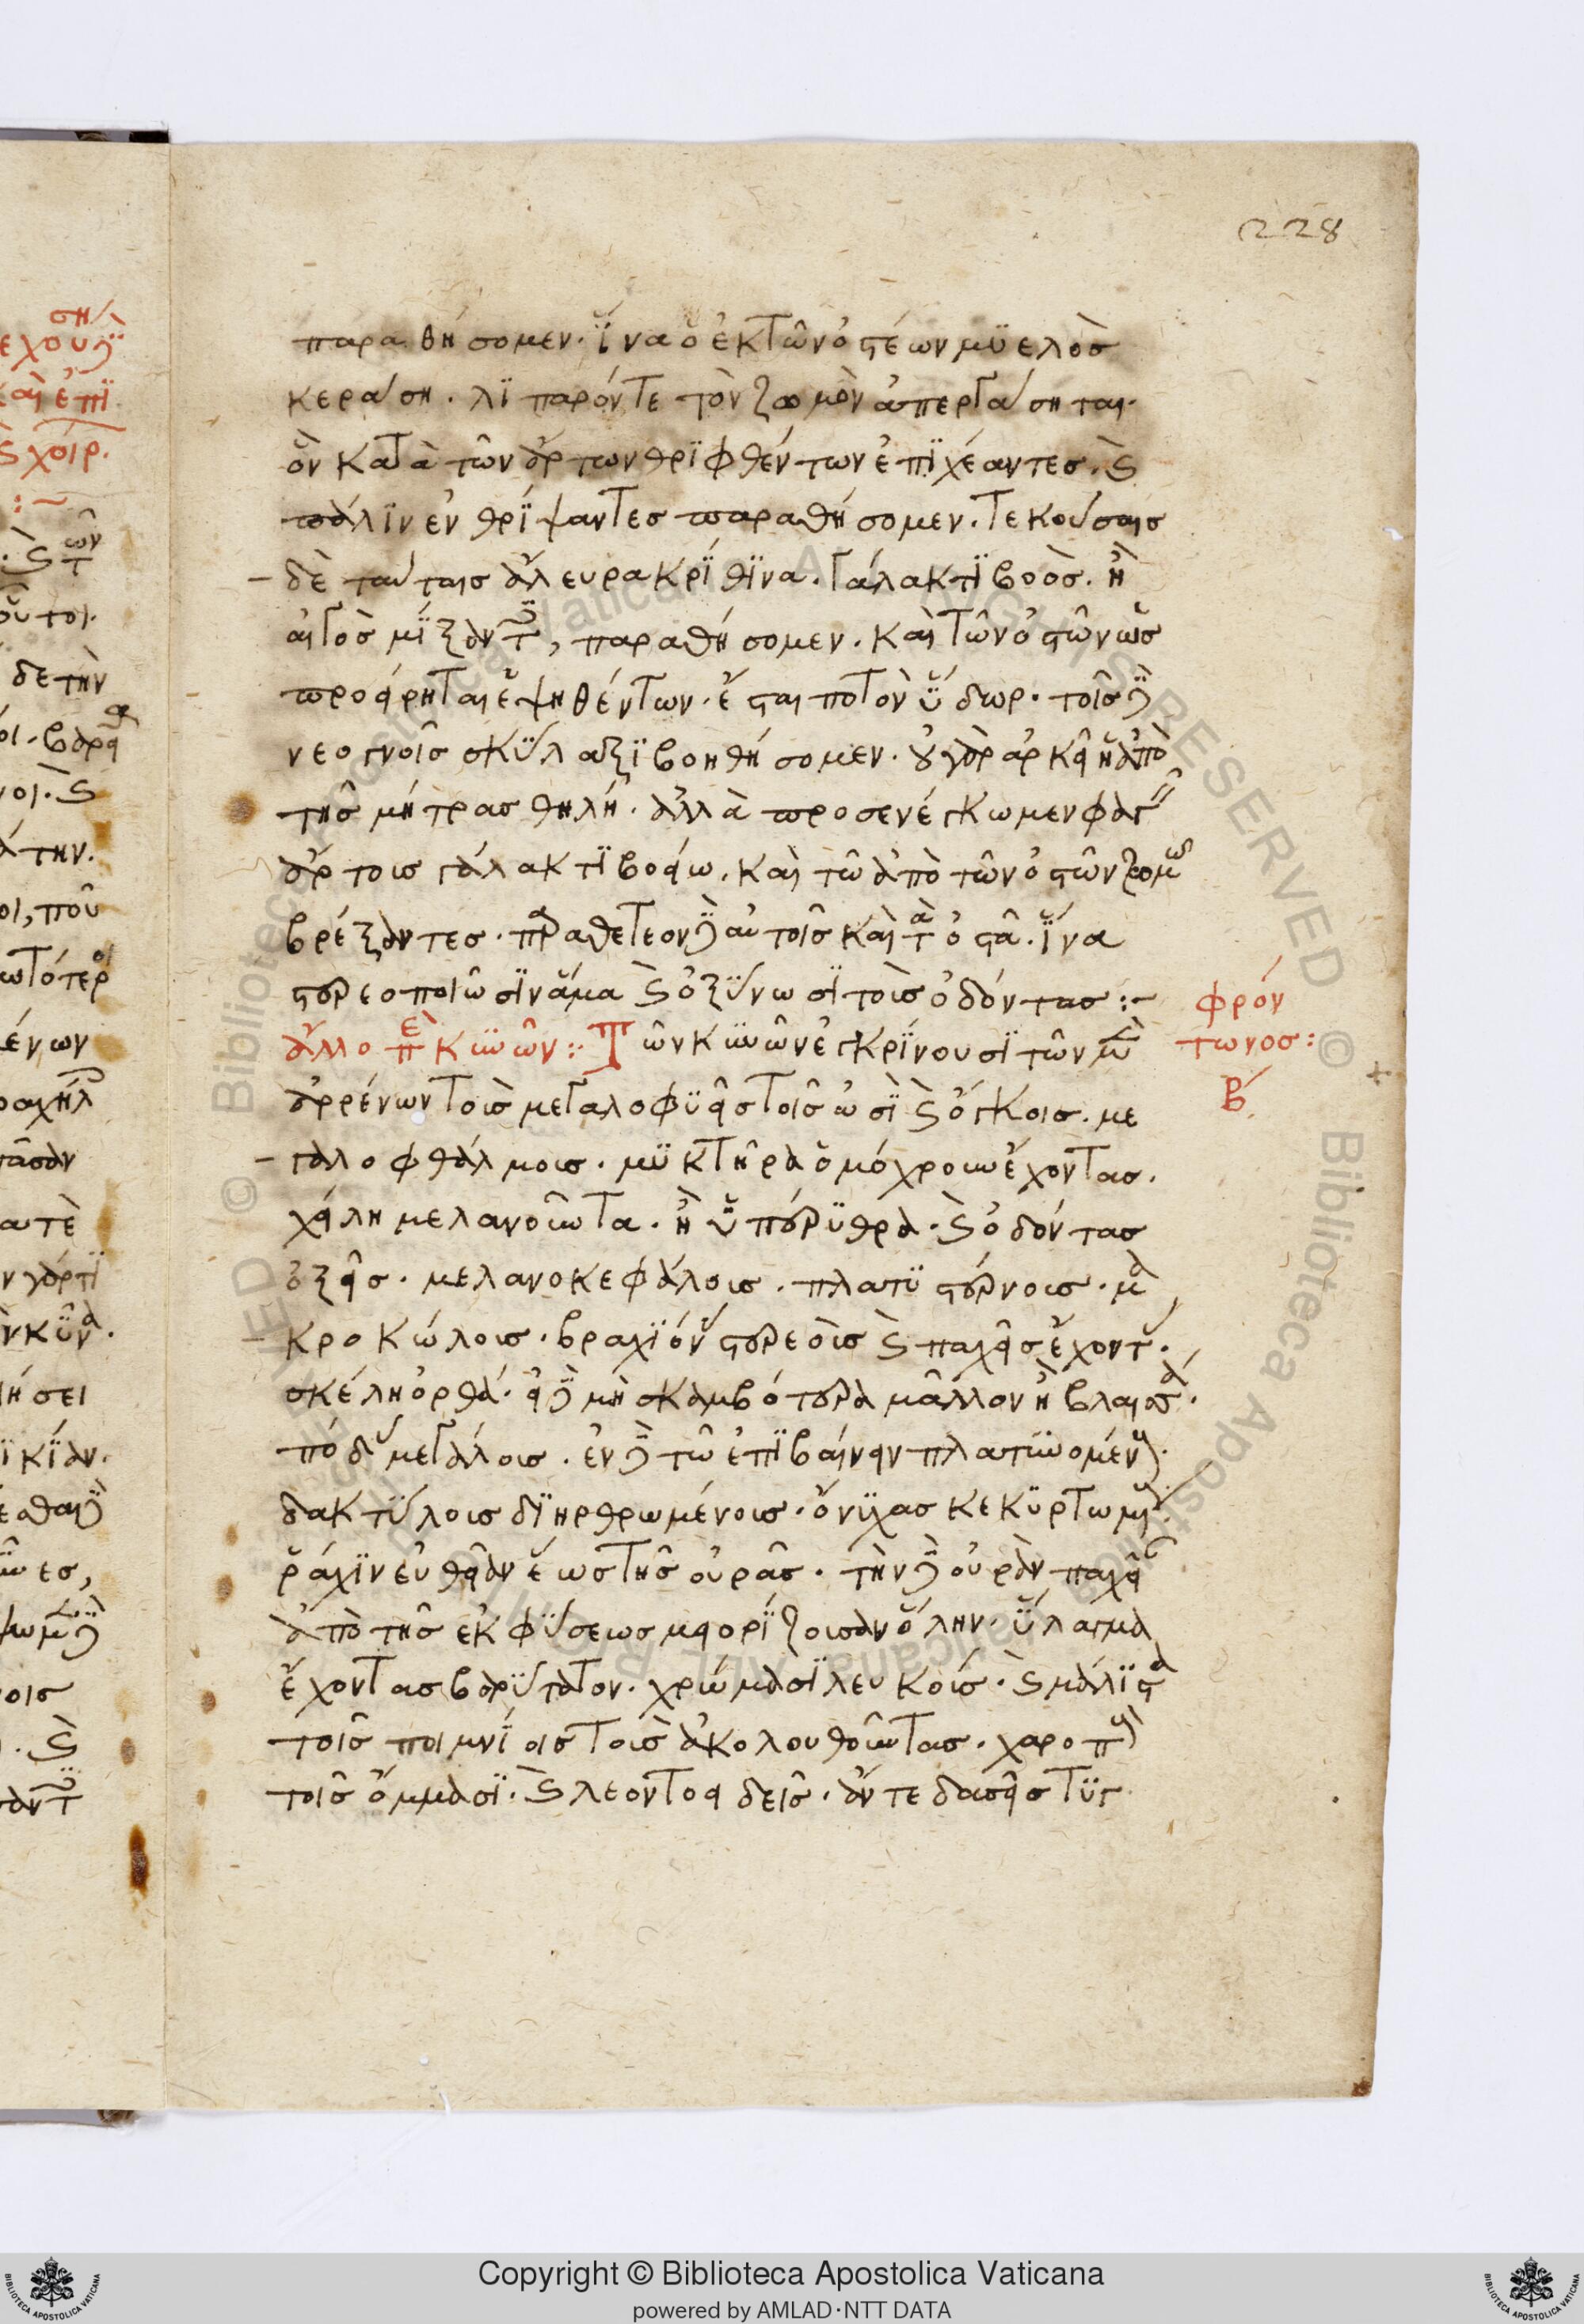 228
παραθήσομεν. ἵνα ὁ ἐκ τῶν ὀστέων μυελὸσ
κεράση. λιπαρόν τε τὸν ζωμὸν ἀπεργάσηται.
ὃν κατὰ τῶν ἄρτων θριφθέντων ἐπιχέαντεσ. ϗ
πάλιν ἐνθρίψαντεσ παραθήσομεν. τεκούσαισ
δὲ ταύταισ ἄλευρα κρίθινα. γάλακτι βοὸσ. ἢ
αἰγὸσ μίξαντ, παραθήσομεν. καὶ τῶν ὀστῶν ὡσ
προείρηται ἑψηθέντων. ἔσται ποτὸν ὕδωρ. τοῖσ δὲ
νεογνοῖσ σκύλαξι βοηθήσομεν. οὐ γὰρ ἀρκεῖ ἡ ἀπὸ
τῆσ μήτρασ θηλή. ἀλλὰ προσενέγκωμεν φαγ
ἄρτοισ γάλακτι βοείω. καὶ τῶ ἀπὸ τῶν ὀστῶν ζομῶ
βρέξαντεσ. παραθετέον δὲ αὐτοῖσ καὶ τὰ ὀστᾶ. ἵνα
στερεοποιῶσιν ἅμα ϗ ὀξύνωσι τοὺσ ὀδόντασ :~
φρόν
τωνοσ :
β
ἄλλο περὶ κυνῶν :: Τῶν κυνῶν ἐγκρίνουσι τῶν μὲν
ἀρρένων τοὺσ μεγαλοφυεῖσ τοῖσ ὠσὶ ϗ ὄγκοισ. με
γαλοφθάλμοισ. μυκτῆρα ὁμόχροιν ἔχοντασ.
χείλη μελανοῦντα. ἢ ὑπέρυθρα. ϗ ὀδόντασ
ὀξεῖσ. μελανοκεφάλοισ. πλατυστέρνοισ. μα
κροκώλοισ. βραχίόν στερεοὺσ ϗ παχεῖσ ἔχοντ.
σκέλη ὀρθά. εἰ δὲ μὴ σκαμβότερα μᾶλλον ἢ βλαισά.
πόδ μεγάλοισ. ἐν δὲ τῶ ἐπιβαίνειν πλατυνομέν.
δακτύλοισ διηρθρωμένοισ. ὄνυχασ κεκυρτωμ.
ῥάχιν εὐθεῖαν ἕωσ τῆσ οὐρᾶσ. τὴν δὲ οὐρὰν παχεῖ
ἀπὸ τῆσ ἐκφύσεωσ μειορίζουσαν ὅλην. ὕλαγμα
ἔχοντασ βαρύτατον. χρώμασι λευκούσ. ϗ μάλιστα
τοῖσ ποιμνίοισ τοὺσ ἀκολουθοῦντασ. χαροπ
τοῖσ ὄμμασι. ϗ λεοντοειδεῖσ. ἄν τε δασεῖσ τυγ
Copyright © Biblioteca Apostolica Vaticana
powered by AMLAD·NTT DATA